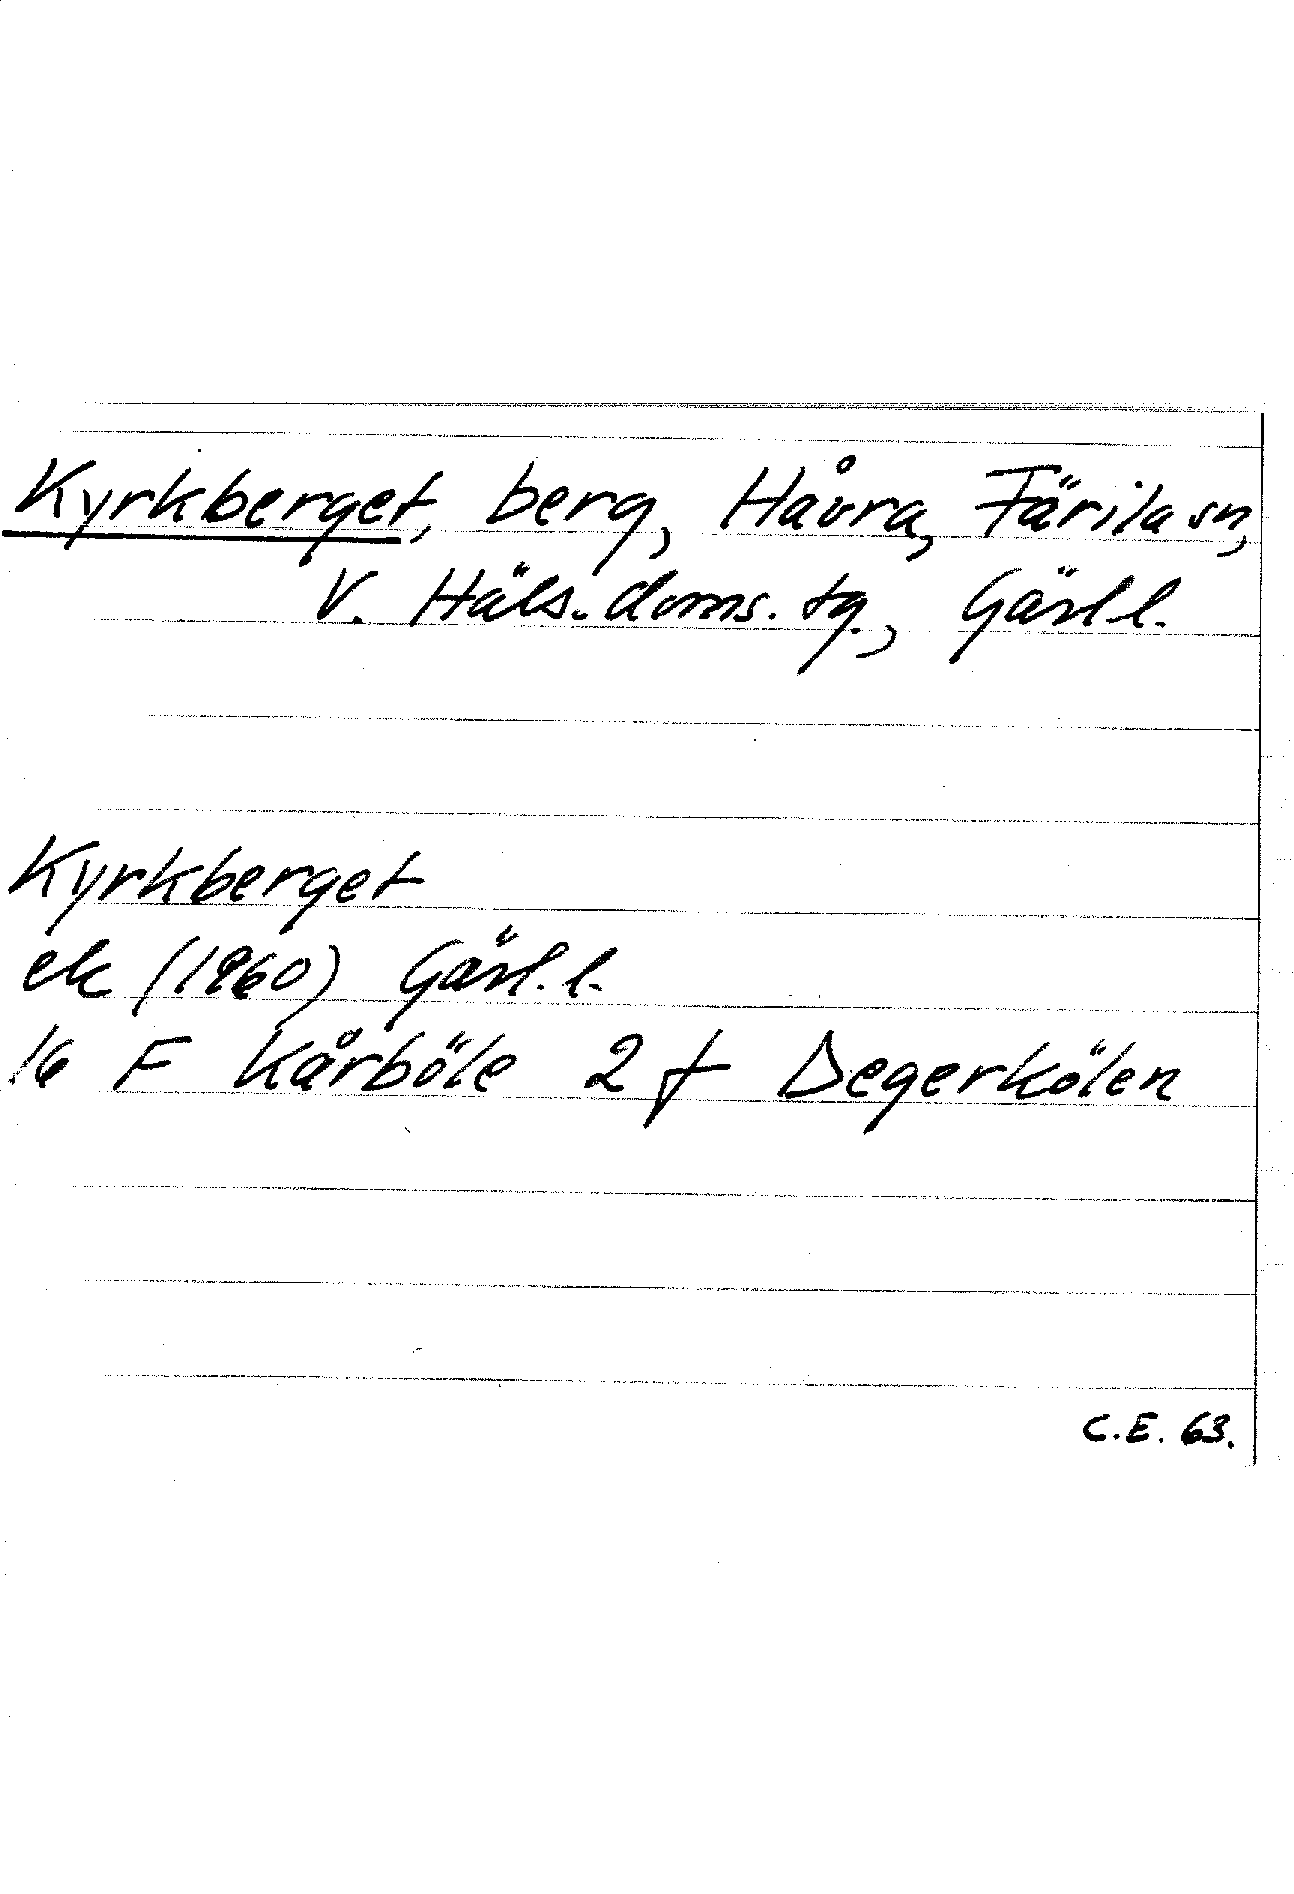 Kyrkberget, berg, Håvra, Färila sn,
V. Häls. doms. tg., Gävl l.
Kyrkberget
ek (1960) Gävl. l.
16 F Kårböle 2 f Degerkölen
C.E. 63.